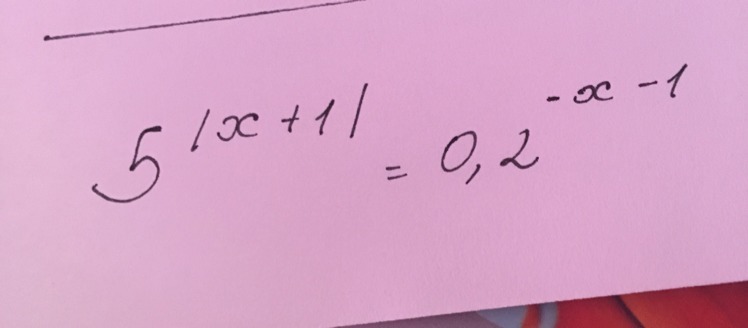 5^|x+1| = 0,2^-x-1